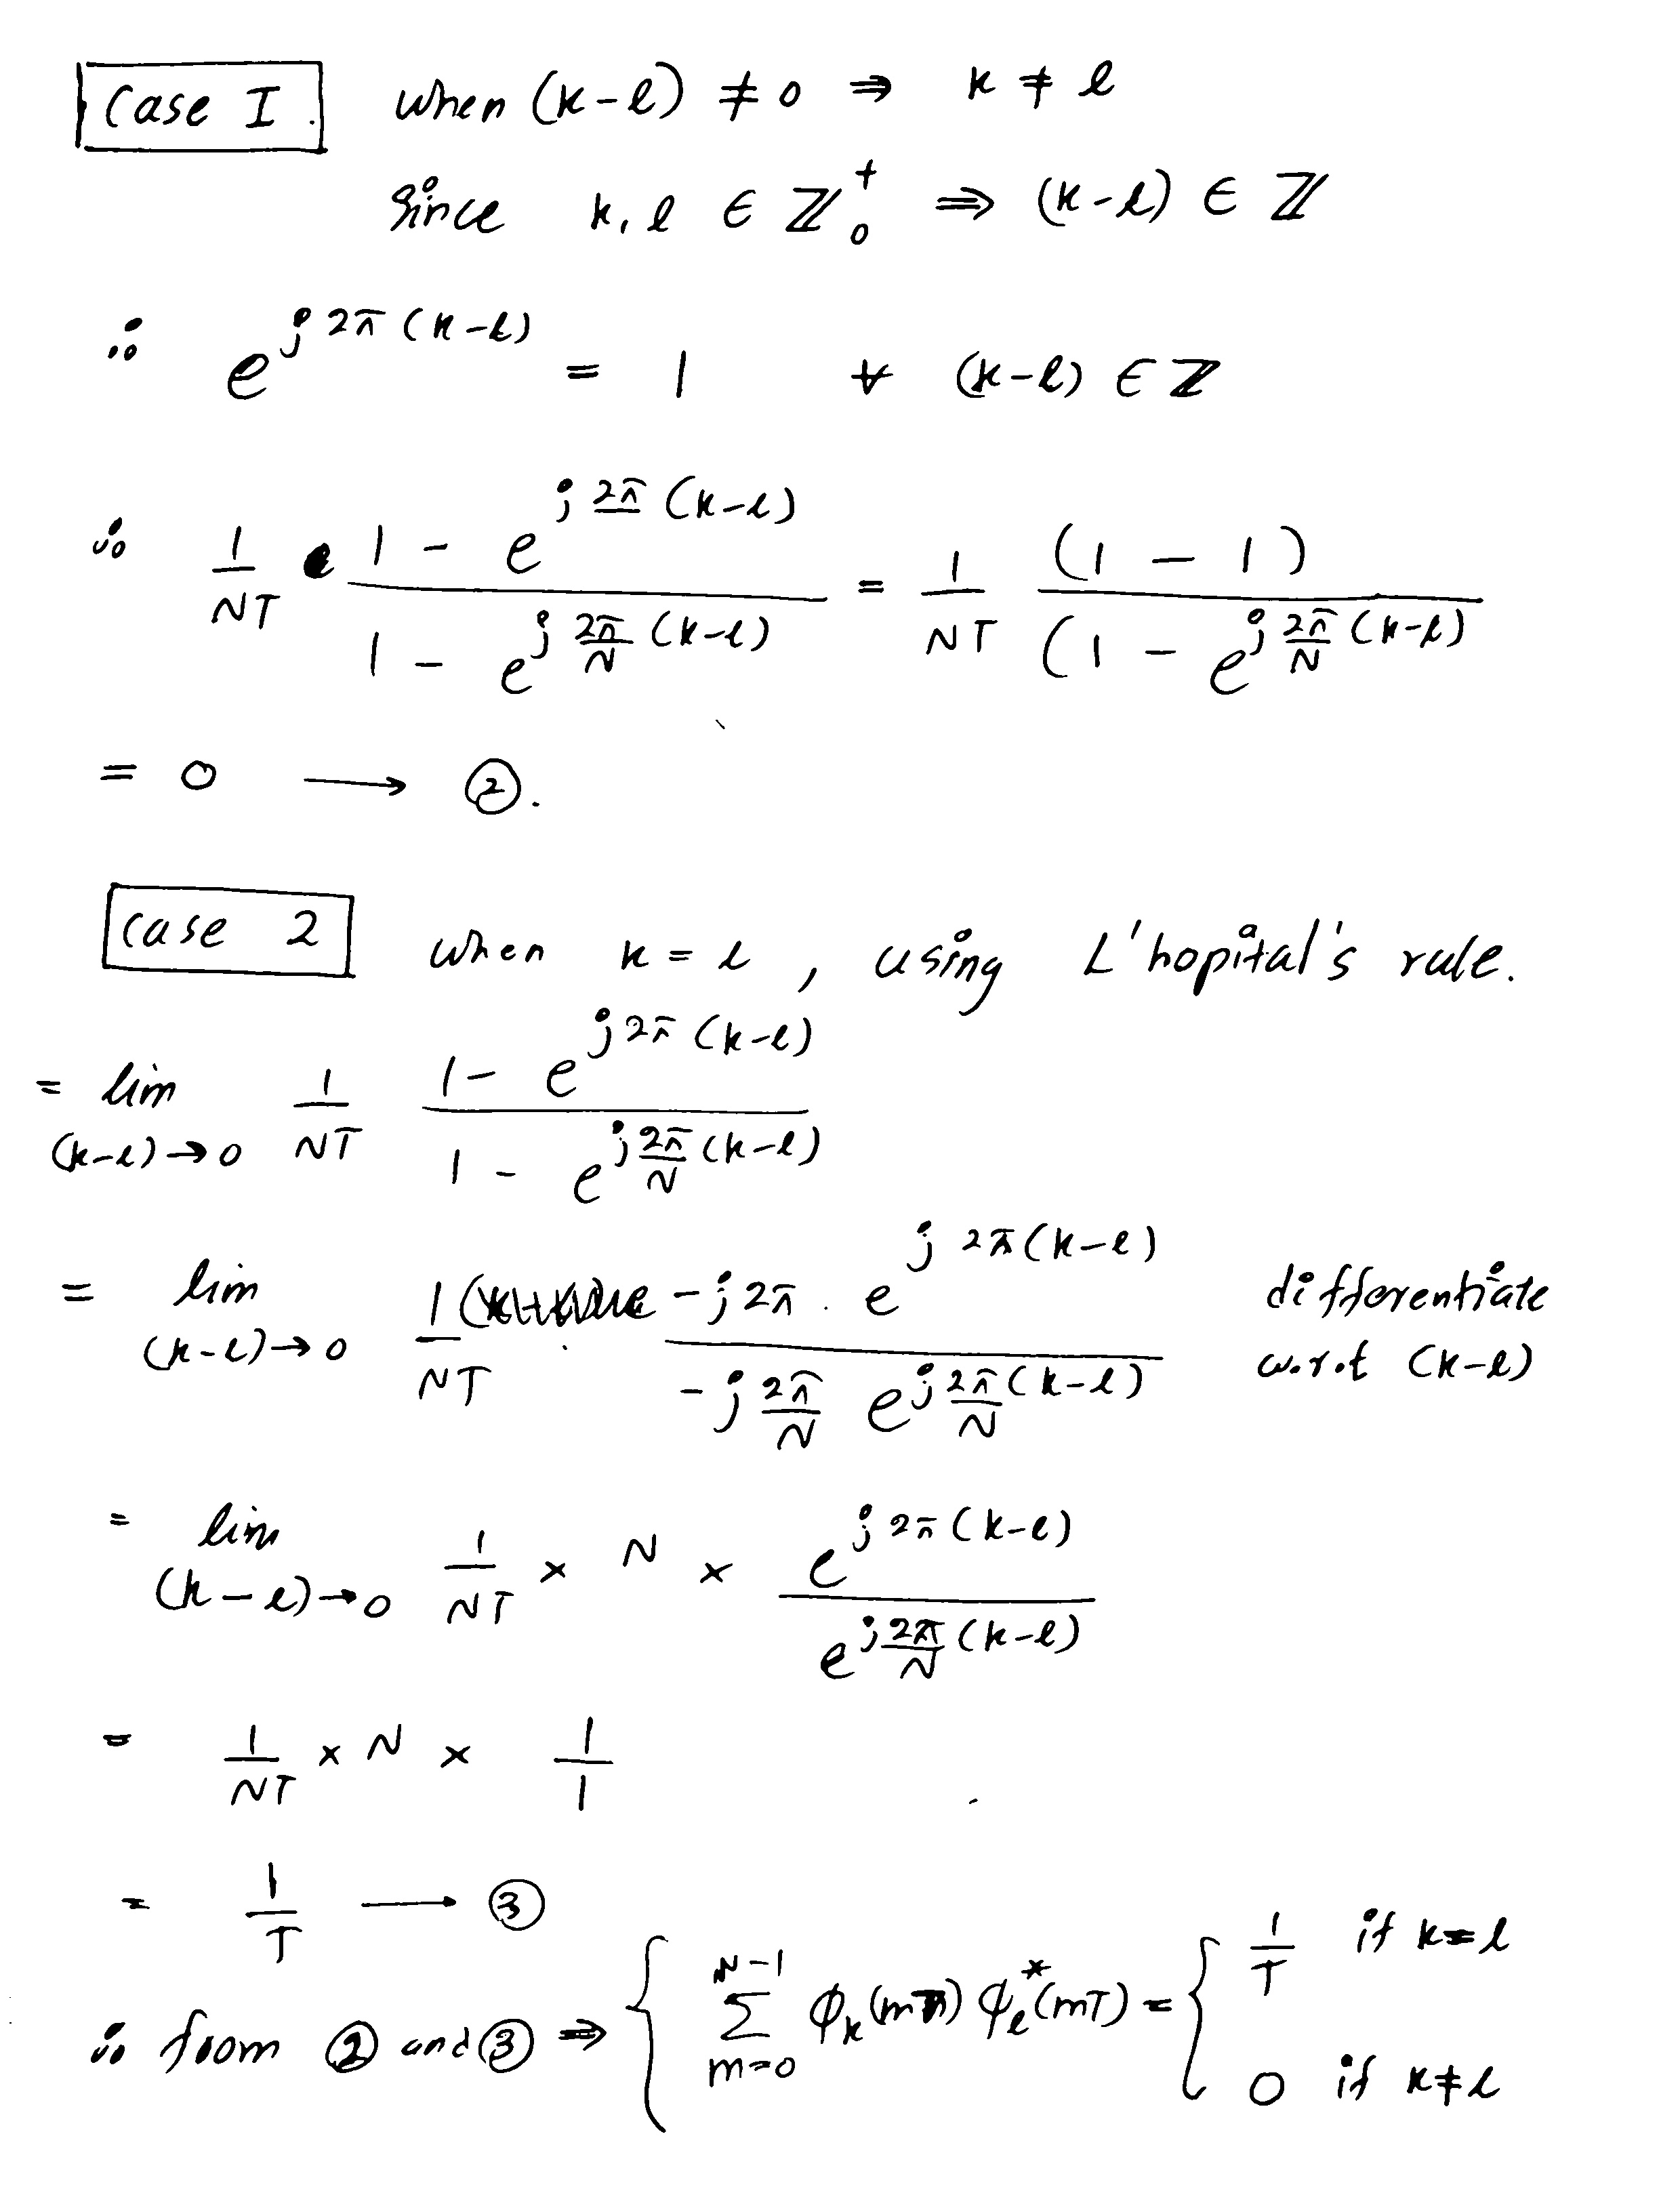 Case I. when (k-l) ≠ 0 ⇒ k ≠ l
Since k, l ∈ ℤ₀⁺ ⇒ (k-l) ∈ ℤ
∴ e^{j2π(k-l)} = 1 ∀ (k-l) ∈ ℤ
∴ \frac{1}{NT} \frac{1 - e^{j2π(k-l)}}{1 - e^{j\frac{2π}{N}(k-l)}} = \frac{1}{NT} \frac{(1 - 1)}{(1 - e^{j\frac{2π}{N}(k-l)}}
= 0 ⟶ ②.
case 2 when k = l, using L'hopital's rule.
= lim_{(k-l)→0} \frac{1}{NT} \frac{1 - e^{j2π(k-l)}}{1 - e^{j\frac{2π}{N}(k-l)}}
= lim_{(k-l)→0} \frac{1}{NT} \frac{-j2π . e^{j2π(k-l)}}{-j\frac{2π}{N} e^{j\frac{2π}{N}(k-l)}} differentiate w.r.t (k-l)
= lim_{(k-l)→0} \frac{1}{NT} × N × \frac{e^{j2π(k-l)}}{e^{j\frac{2π}{N}(k-l)}}
= \frac{1}{NT} × N × \frac{1}{1}
= \frac{1}{T} ⟶ ③
∴ from ② and ③ ⇒ { \sum_{m=0}^{N-1} φ_k(mT) φ_l^*(mT) = { \frac{1}{T} if k=l
0 if k≠l